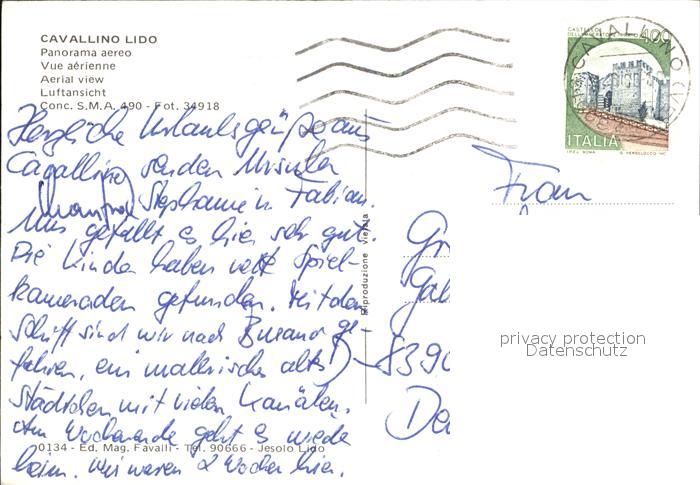 CAVALLINO LIDO
Panorama aereo
Vue aérienne
Aerial view
Luftansicht
Conc. S.M.A. 490 - Fot. 34918
Herzliche Urlaubsgrüße aus
Cavallino senden Ursula
Manfred Stephanie u Fabian.
Uns gefällt es hier sehr gut.
Die Kinder haben nette Spiel-
kameraden gefunden. Mit dem
Schiff sind wir nach Burano ge-
fahren, ein malerisches altes
Städtchen mit vielen Kanälen.
Am Wochenende geht es wieder
heim. Wir waren 2 Wochen hier.
0134 - Ed. Mag. Favalli - Tel. 90666 - Jesolo Lido
Riproduzione Vietata
400
ITALIA
I.P.Z.S. ROMA
CAVALLINO
Frau
Gr
Gab
839
De
privacy protection
Datenschutz